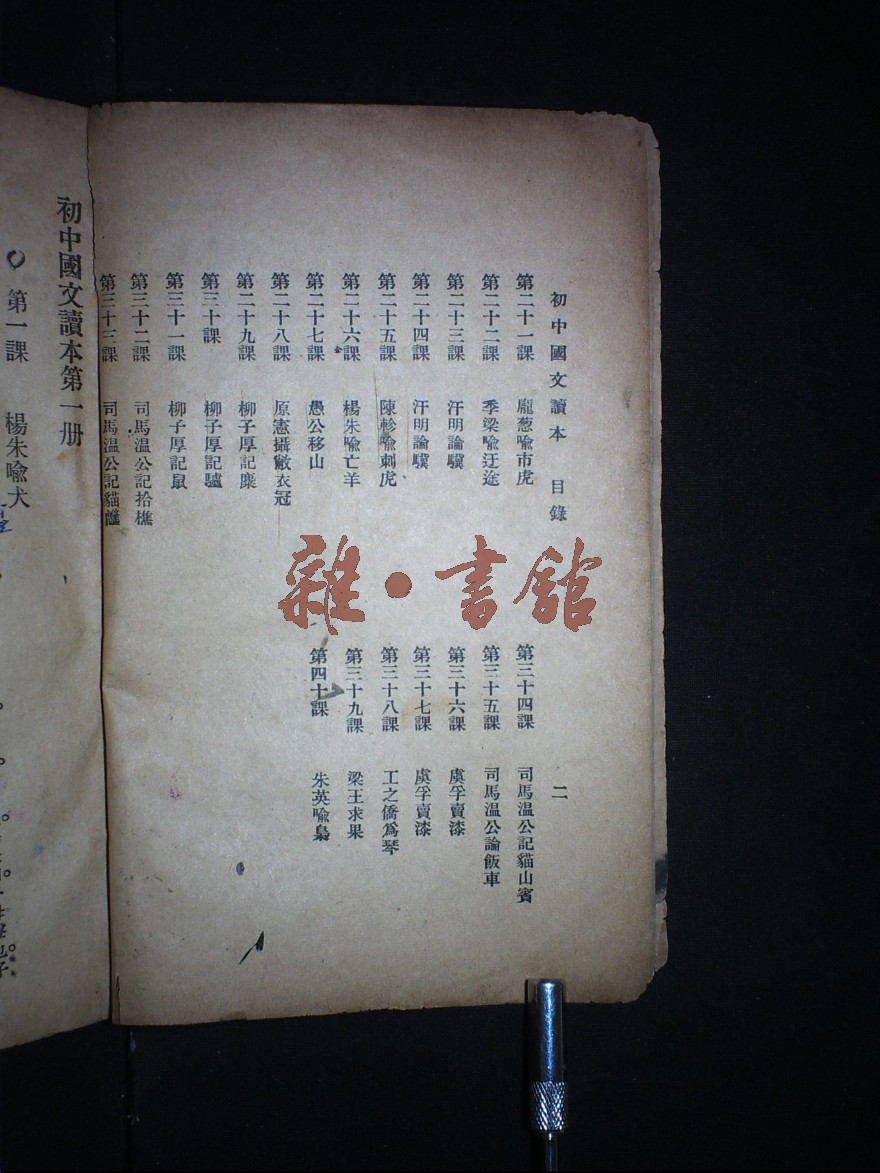 初中國文讀本 目錄 二
第二十一課 龐葱喩市虎
第二十二課 季梁喩迂途
第二十三課 汗明論驥
第二十四課 汗明論驥
第二十五課 陳軫喩刺虎
第二十六課 楊朱喩亡羊
第二十七課 愚公移山
第二十八課 原憲攝敝衣冠
第二十九課 柳子厚記麋
第三十課 柳子厚記驢
第三十一課 柳子厚記鼠
第三十二課 司馬溫公記拾樵
第三十三課 司馬溫公記貓
第三十四課 司馬溫公記貓山賓
第三十五課 司馬溫公論飯車
第三十六課 虞孚賣漆
第三十七課 虞孚賣漆
第三十八課 工之僑爲琴
第三十九課 梁王求果
第四十課 朱英喩梟
雜·書館
初中國文讀本第一册
第一課 楊朱喩犬